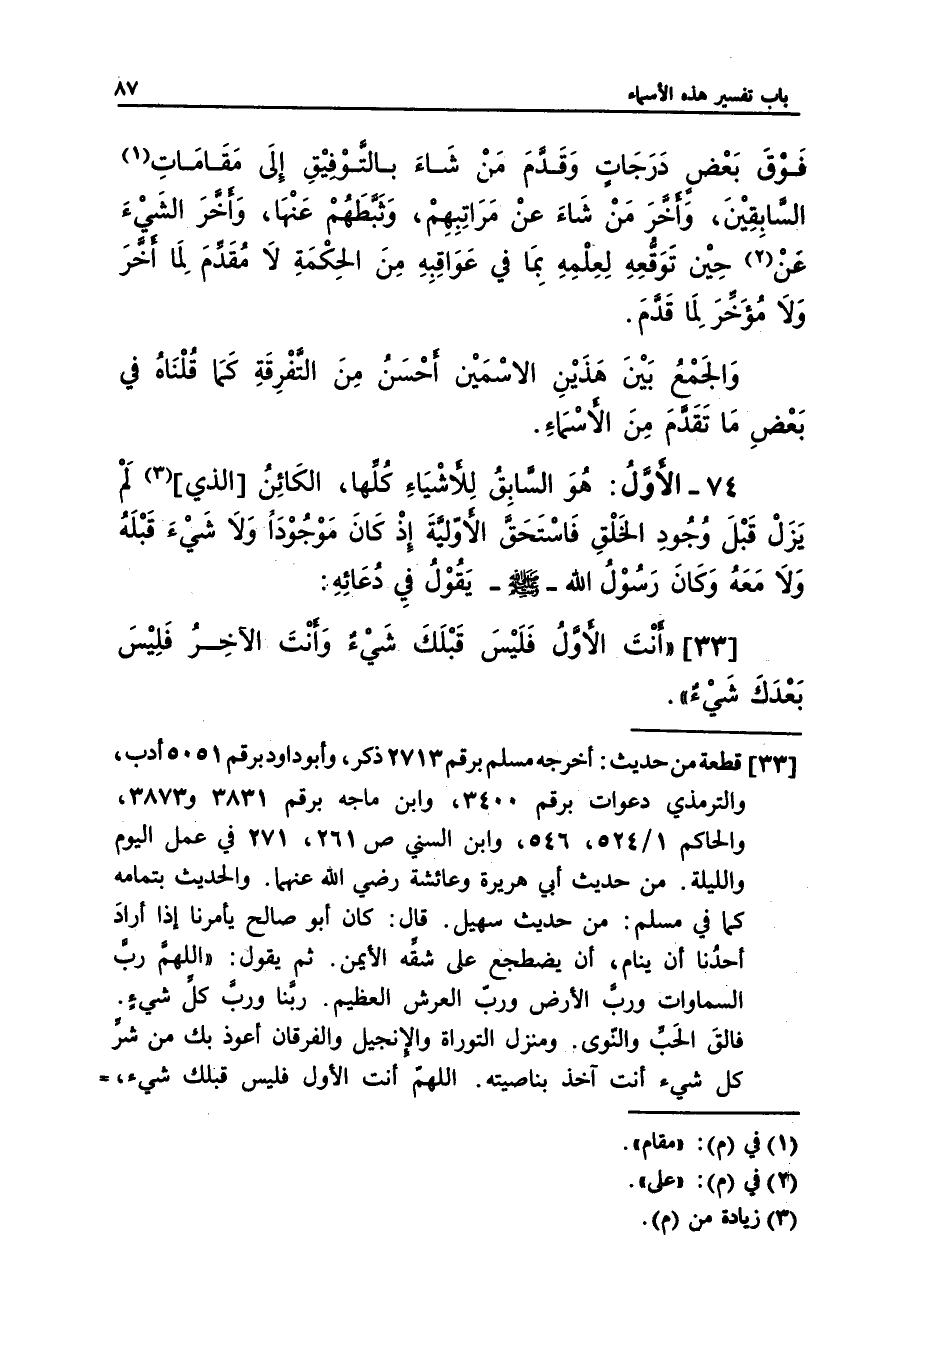 باب تفسير هذه الأسماء ٨٧
فَوْقَ بَعْضٍ دَرَجَاتٍ وَقَدَّمَ مَنْ شَاءَ بالتَّوْفِيْقِ إِلَى مَقَامَاتِ(١)
السَّابِقِيْنَ، وَأَخَّرَ مَنْ شَاءَ عنْ مَرَاتِبِهِمْ، وَثَبَّطَهُمْ عَنْهَا، وَأَخَّرَ الشَّيْءَ
عَنْ(٢) حِيْنِ تَوَقُّعِهِ لِعِلْمِهِ بِمَا في عَوَاقِبِهِ مِنَ الحِكْمَةِ لَا مُقَدَّمَ لِمَا أَخَّرَ
وَلَا مُؤَخِّرَ لِمَا قَدَّمَ.
وَالجَمْعُ بَيْنَ هَذَيْنِ الاسْمَيْنِ أَحْسَنُ مِنَ التَّفْرِقَةِ كَمَا قُلْنَاهُ في
بَعْضِ مَا تَقَدَّمَ مِنَ الأَسْمَاءِ.
٧٤ ـ الأَوَّلُ: هُوَ السَّابِقُ لِلأَشْيَاءِ كُلِّها، الكَائِنُ [الذي](٣) لَمْ
يَزَلْ قَبْلَ وُجُودِ الخَلْقِ فَاسْتَحَقَّ الأَوّليَّةَ إِذْ كَانَ مَوْجُوْدَاً وَلَا شَيْءَ قَبْلَهُ
وَلَا مَعَهُ وَكَانَ رَسُوْلُ الله ـ ﷺ ـ يَقُوْلُ فِي دُعَائِهِ:
[٣٣] «أَنْتَ الأَوَّلُ فَلَيْسَ قَبْلَكَ شَيْءٌ وَأَنْتَ الآخِرُ فَلِيْسَ
بَعْدَكَ شَيْءٌ».
[٣٣] قطعة من حديث: أخرجه مسلم برقم ٢٧١٣ ذكر، وأبو داود برقم ٥٠٥١ أدب،
والترمذي دعوات برقم ٣٤٠٠، وابن ماجه برقم ٣٨٣١ و٣٨٧٣،
والحاكم ٥٢٤/١، ٥٤٦، وابن السني ص ٢٦١، ٢٧١ في عمل اليوم
والليلة. من حديث أبي هريرة وعائشة رضي الله عنهما. والحديث بتمامه
كما في مسلم: من حديث سهيل. قال: كان أبو صالح يأمرنا إذا أرادَ
أحدُنا أن ينام، أن يضطجع على شقِّه الأيمن. ثم يقول: «اللهمَّ ربَّ
السماوات وربَّ الأرض وربّ العرش العظيم. ربَّنا وربَّ كلِّ شيءٍ.
فالقَ الحَبِّ والنّوى. ومنزل التوراة والإنجيل والفرقان أعوذ بك من شرِّ
كل شيء أنت آخذ بناصيته. اللهمّ أنت الأول فليس قبلك شيء، =
(١) في (م): «مقام».
(٢) في (م): «على».
(٣) زيادة من (م).